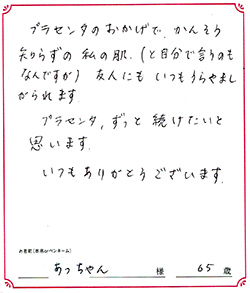 プラセンタのおかげで、かんそう
知らずの私の肌、(と自分で言うのも
なんですが) 友人にも いつもうらやまし
がられます.
プラセンタ, ずっと続けたいと
思います.
いつもありがとうございます.
お名前(本名orペンネーム)
あっちゃん 様 65 歳